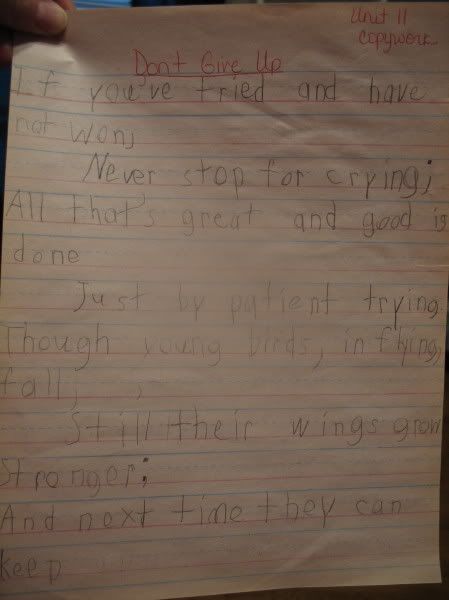 Unit 11
Copywork...
Dont Give Up
If you've tried and have
not won,
Never stop for crying;
All that's great and good is
done
Just by patient trying.
Though young birds, in flying,
fall,
Still their wings grow
Stronger;
And next time they can
keep